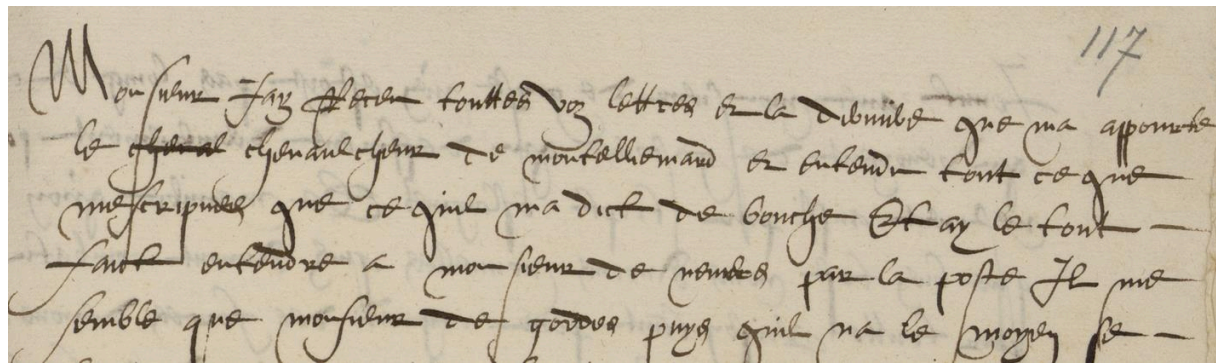 117
Monsieur Jay Receu touttes voz lettres et la derniere que ma appourte
le cheval chevaulcheur de montelliemard et entendu tout ce que
mescripvees que ce quil ma dict de bouche Et ay le tout
faict entendre a monsieur de nemors par la poste Il me
semble que monsieur de gordes puys quil na le moyen se